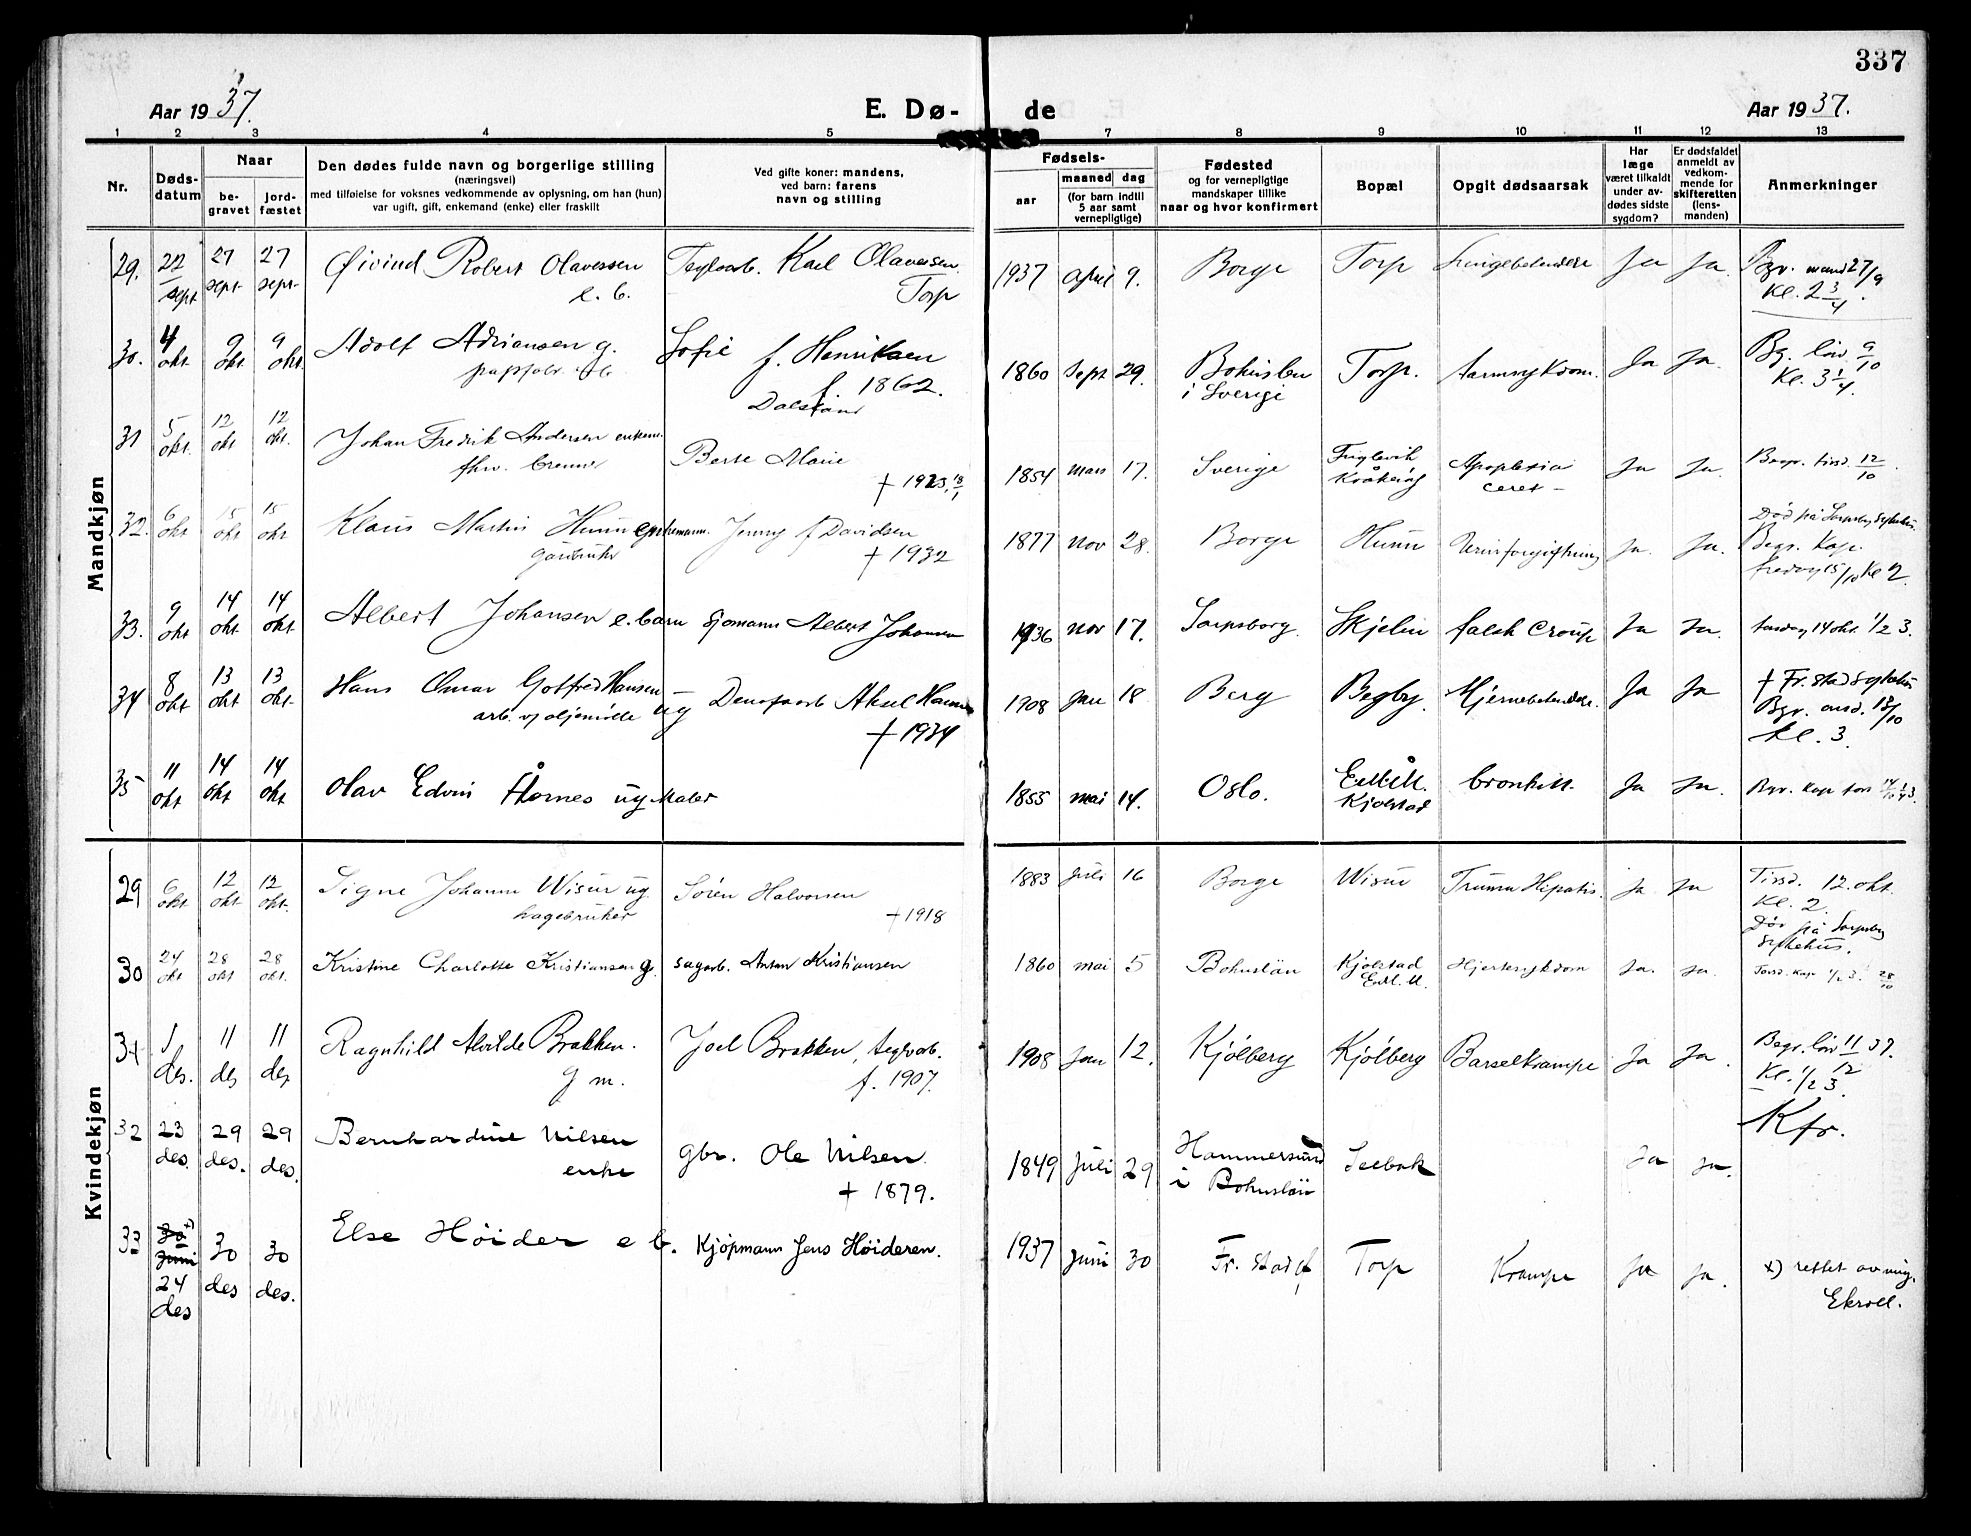 337
Aar 1937. E. Dø- de Aar 1937.
1 2 3 4 5 7 8 9 10 11 12 13
Nr.
Døds-
datum
Naar
be-
gravet
jord-
fæstet
Den dødes fulde navn og borgerlige stilling
(næringsvei)
med tilføielse for voksnes vedkommende av oplysning, om han (hun)
var ugift, gift, enkemand (enke) eller fraskilt
Ved gifte koner: mandens,
ved barn: farens
navn og stilling
Fødsels-
aar
maaned dag
(for barn indtil
5 aar samt
vernepligtige)
Fødested
og for vernepligtige
mandskaper tillike
naar og hvor konfirmert
Bopæl
Opgit dødsaarsak
Har
læge
været tilkaldt
under av-
dødes sidste
sygdom?
Er dødsfaldet
anmeldt av
vedkom-
mende for
skifteretten
(lens-
manden)
Anmerkninger
Mandkjøn
29. 22 27 27 Øivind Robert Olavessen Teglvarb. Karl Olavesen 1937 April 9. Borge Torp Lungebetendere Ja Ja. Bgr. mand 27/9
sept sept. sept. e. b. Torp Kl. 2 3/4.
30. 4 9 9 Adolf Adriansen g. Sofie f. Henriksen 1860 Sept 29. Bohuslen Torp. Tarmsykdom. Ja Ja. Bg. lör. 9/10
okt okt. okt. f. 1862. i Sverige Kl. 3 1/4
Dalsland
31 5 12 12 Johan Fredrik Andersen enkem. Berte Marie 1854 mars 17. Sverige Fuglevik Apoplexia Ja Ja. Begr. tirsd. 12/10.
okt. okt okt. † 1923. 18/1 Kråkeröy
32. 6 15 15 Klaus Martin Hunn enkemann. Jenny f Davidsen 1877 nov 28. Borge Hunn Urinforgiftning Ja. Ja. Död på Sarpsborg Sykehus.
okt okt okt gårdbruker † 1932 Begr. Kap.
fredag 15/10 Kl 2.
33. 9 14 14 Albert Johansen e. barn Sjømann Albert Johansen 1936 nov 17. Sarpsborg. Skjelin falsk Croup Ja Ja. torsdag 14 okt. 1/2 3.
okt okt okt
34 8 13 13 Hans Omar Gotfred Hansen ug Denofaarb Aksel Hansen 1908 Jan 18 Berg Begby. Hjernebetendere. Ja Ja † Fr.stad sykehus
okt okt okt. arb. v/ oljemölle † 1934 Bgr. onsd. 13/10
Kl. 3.
35 11 14 14 Olav Edvin Åfornes ug Maler 1855 mai 14. Oslo. E.d.M. bronkitt. Ja Ja. Bgr. Kap tors 14/10
okt okt okt Kjølstad
Kvindekjøn
29 6 12 12 Signe Johanne Wisur ug. Sören Halvorsen 1883 Juli 16 Borge Wisur Trumn Hepatis. Ja Ja Tirsd. 12. okt.
okt okt okt. hagebruker † 1918 Kl. 2
Död på Sarpsborg
sykehus.
30 24 28 28 Kristine Charlotte Kristiansen g. sagarb. Anton Kristiansen 1860 mai 5 Bohuslän Kjølstad Hjertesykdom Ja. Ja. Torsd. Kap 1/2 3. 28/10
okt okt okt. End. M.
31 1 11 11 Ragnhild Alvilde Brakken. Joel Brakken, teglvarb. 1908 Jan 12. Kjölberg Kjölberg Barselkrampe Ja Ja. Begr. lör 11/12 37.
des. des des g m. f. 1907. Kl. 1/2 3
Kfr.
32 23 29 29 Bernhardine Nilsen gbr. Ole Nilsen. 1849 Juli 29 Hammersund Seebak Ja Ja.
des. des. des. enke † 1879. i Bohuslän
33 30 x) 30 30 Else Höider e b. Kjöpmann Jens Höideren. 1937 Juni 30 Fr. stad Torp Krampe Ja Ja. x) rettet av mig.
Juni des des. Ekroll.
24
des